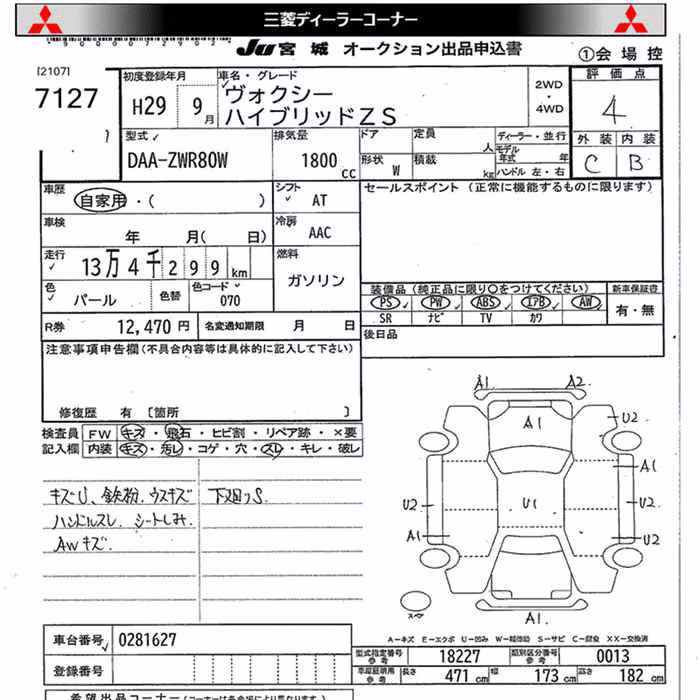 三菱ディーラーコーナー
JU 宮城 オークション出品申込書
①会場控
[2107]
7127
初度登録年月
H29 9月
車名・グレード
ヴォクシー
ハイブリッドZS
2WD
・
4WD
評価点
4
外装 内装
C B
型式
DAA-ZWR80W
排気量
1800 CC
ドア 定員 人
形状 W 積載 kg
ディーラー・並行
モデル年式 年
ハンドル 左・右
車歴
自家用・( )
シフト AT
セールスポイント (正常に機能するものに限ります)
車検
年 月( 日)
冷房 AAC
走行
13万4千299km
燃料
ガソリン
色 パール 色替 色コード 070
装備品 (純正品に限り○をつけてください)
PS PW ABS エアB AW
SR ナビ TV カワ
新車保証書
有・無
R券 12,470円 名変通知期限 月 日
後日品
注意事項申告欄(不具合内容等は具体的に記入して下さい)
修復歴 有 〔箇所 〕
検査員 FW キズ・飛石・ヒビ割・リペア跡・×要
記入欄 内装 キズ・汚レ・コゲ・穴・スレ・キレ・破レ
キズU、鉄粉、ウスキズ 下廻りS
ハンドルスレ、シートしみ、
AWキズ
A1 A2
A1 U2
A1
U2 U1 U2
A1
A1
スペア
A-キズ E-エクボ U-凹み W-補修跡 S-サビ C-腐食 XX-交換済
車台番号 0281627
登録番号
型式指定番号 参考 18227 類別区分番号 参考 0013
参考 長さ 471cm 幅 173cm 高さ 182cm
希望出品コーナー